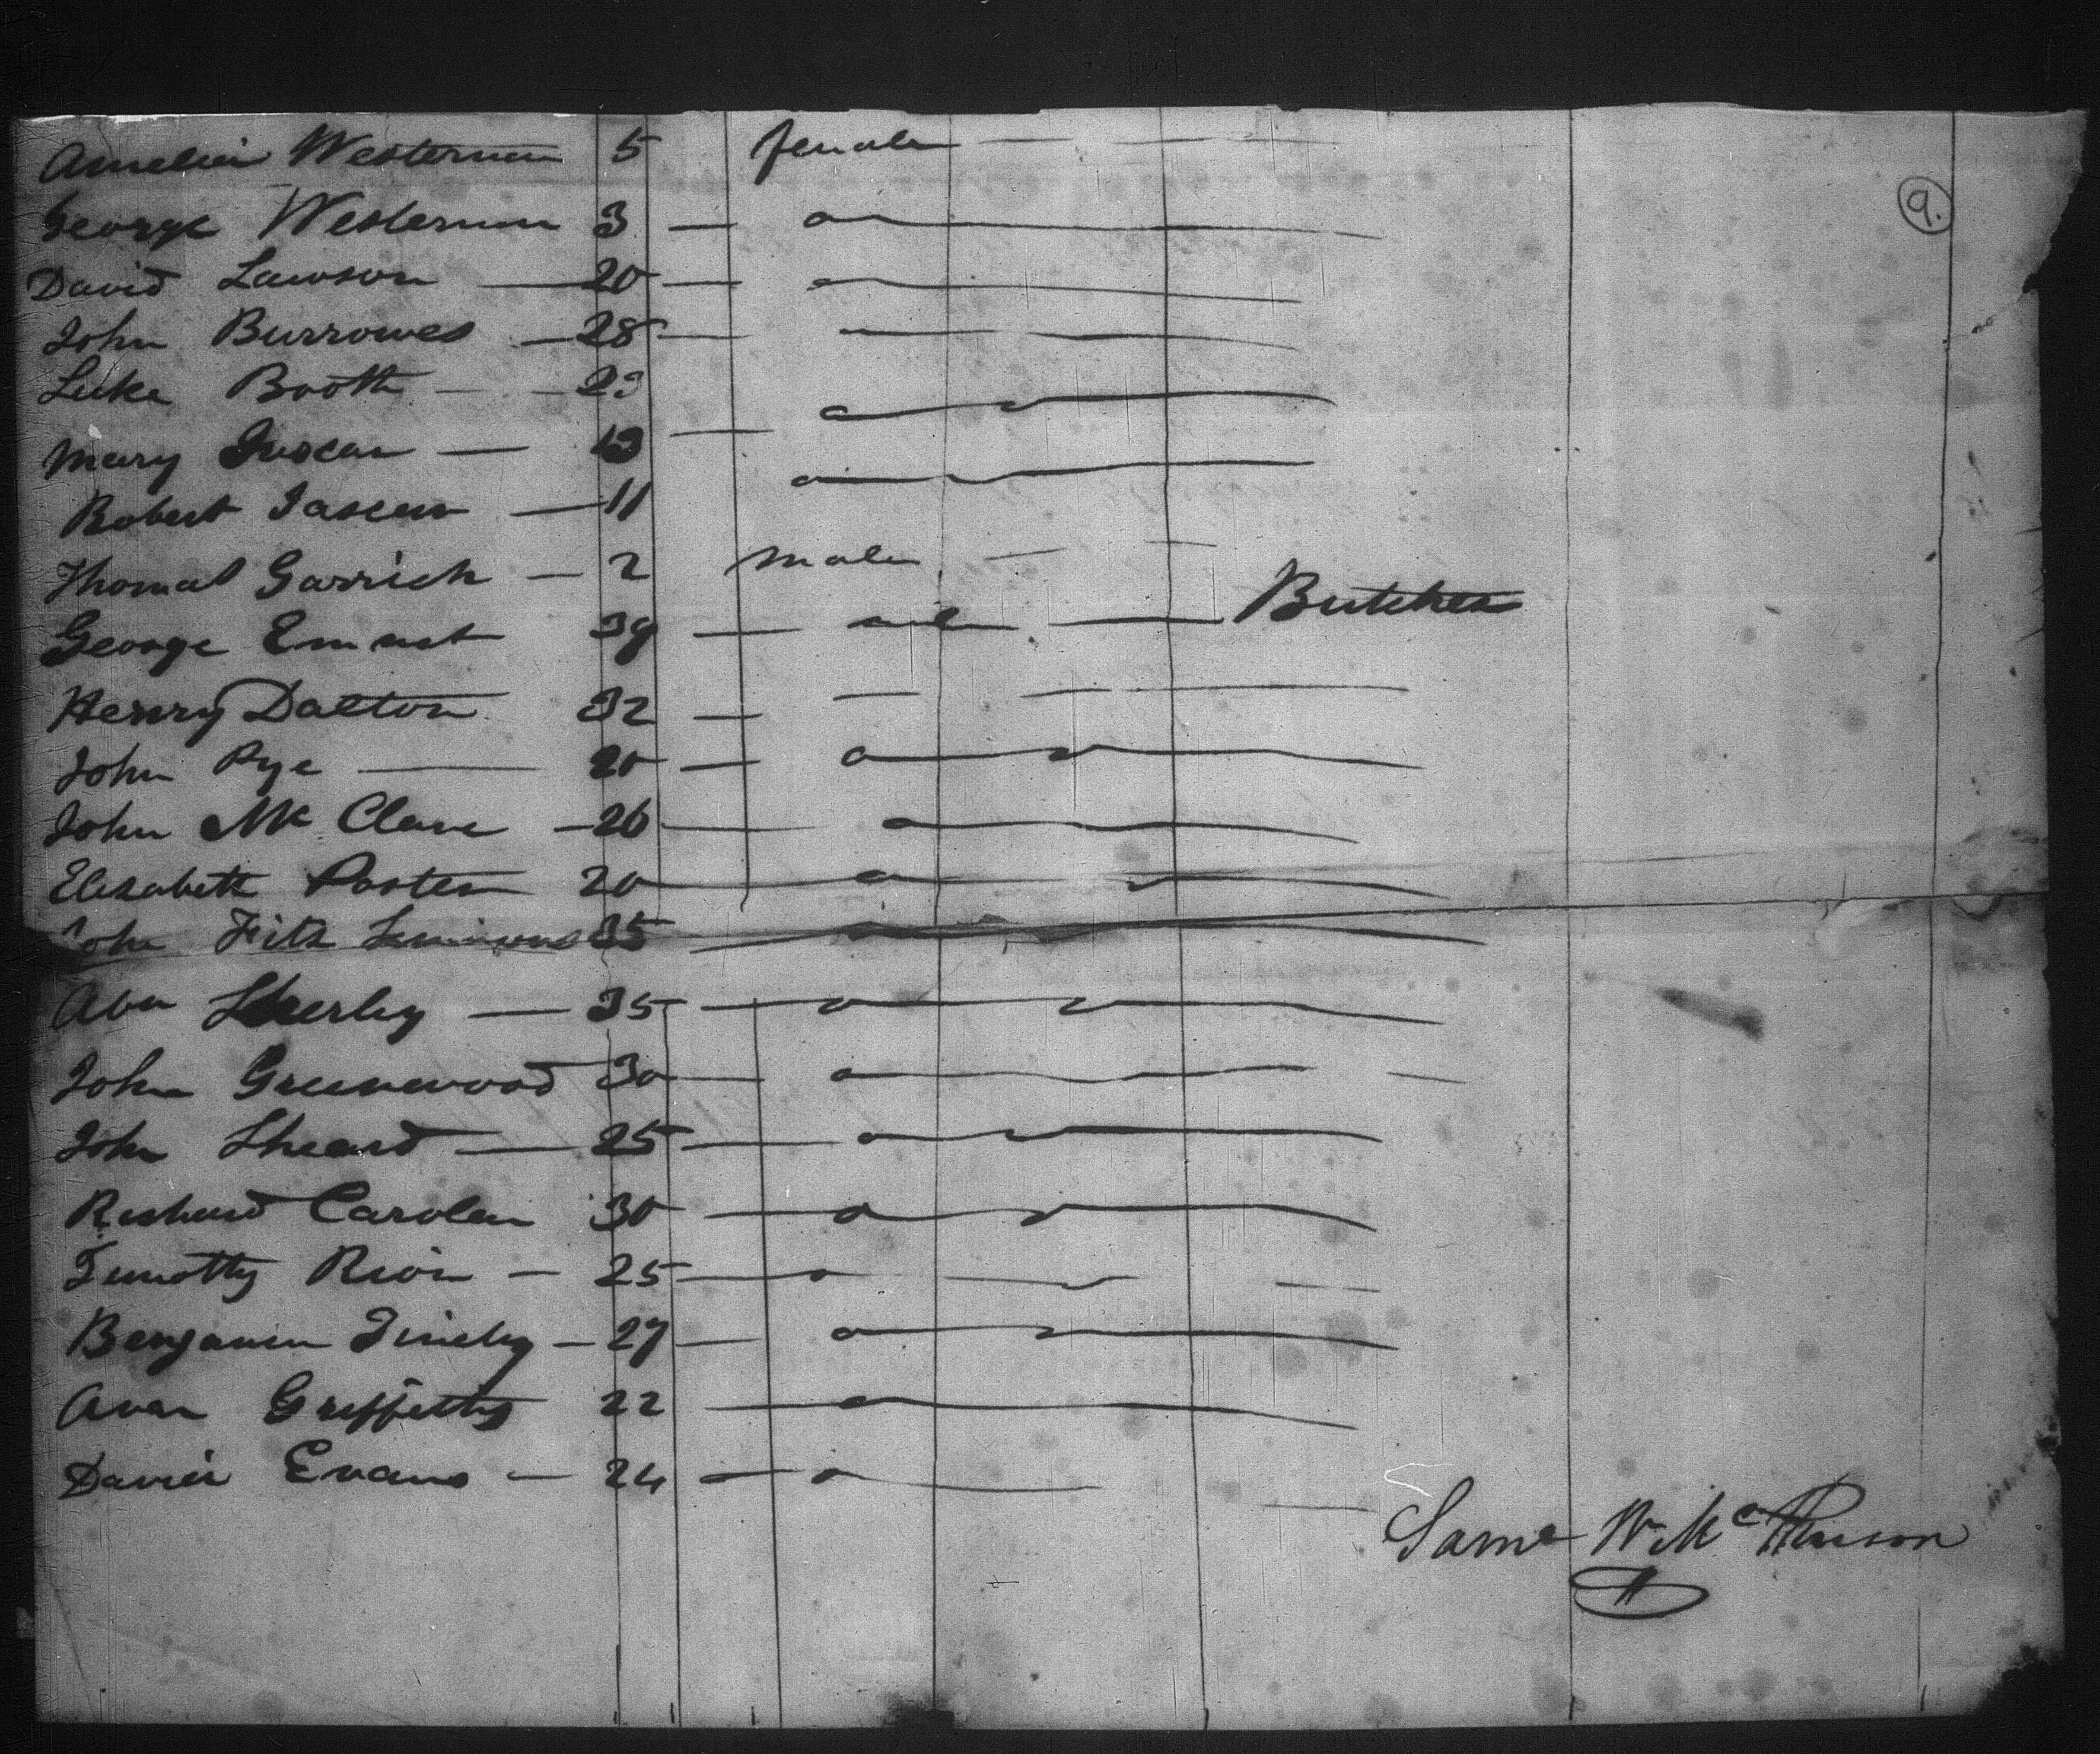 Amelia Westernen 5 female
9.
George Westernen 3
David Lawson 20
John Burrowes 28
Luke Booth 23
Mary 13
Robert 11
Thomas Garrick 2 male
George Emmet 39 Butcher
Henry Dalton 32
John Pye 20
John Mc Clane 26
Elizabeth Porter 20
John Fitz Simmons 35
Sherley 35
John Greenwood 30
John Sheard 25
Richard Carolan 30
Timothy Rion 25
Benjamin 27
Griffeths 22
Evans 24
Saml W. McPherson